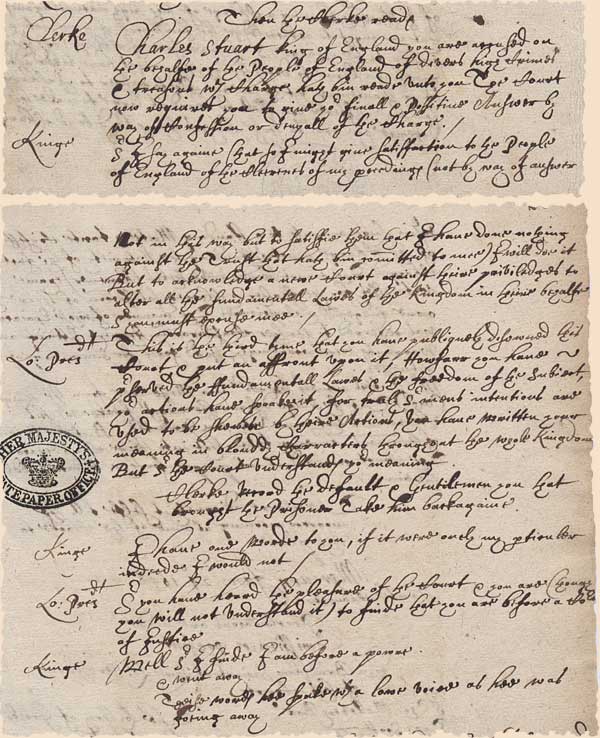 Then the Clerke read
Clerke Charles Stuart King of England you are accused on
the behalfe of the People of England of divers high Crimes
& treasons wch Charge hath bin reade unto you The Court
now requires you to give yor finall & Positive Answer by
way of Confession or denyall of the Charge./
Kinge Sr I say againe that so I might give satisfaction to the People
of England of the cleerenes of my proceedings (not by way of answer
Not in this way but to satisfie them that I have done nothing
against the Trust that hath bin comitted to mee) I will doe it
But to acknowledge a new Court against theire priviledges to
alter all the fundamentall Lawes of the Kingdom in theire behalfe
Sr you must excuse mee./
Lo: Presdt This is the third tyme that you have publiquely disowned this
Court & put an affront upon it, Howfarr you have
pserved the ffundamentall Lawes & the freedom of the Subiect,
yor actions have spoken it for truly Sr mens intentions are
Used to be shewen by theire Actions, You have Written your
meaning in bloudy Characters throughout the whole Kingdom
But Sr the Court Understands yor meaning
Clerke record the default & Gentlemen you that
brought the Prisoner Take him back againe
Kinge I have one Worde to you, if it were onely my pticuler
indeede I would not /
Lo: Presdt Sr you have heard the pleasure of the Court & you are (though
you will not Understand it) to finde that you are before a Co
of Justice
Kinge Well Sr I finde I am before a power.
& went away
Theise words hee spake wth a lowe voice as hee was
goeing away
HER MAJESTY'S
STATE PAPER OFFICE